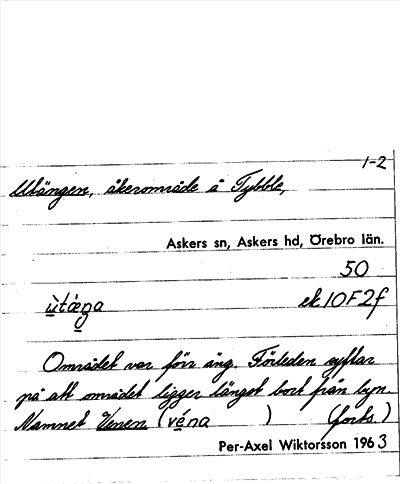 1-2
Utängen, åkerområde å Tybble,
Askers sn, Askers hd, Örebro län.
50
ùtæŋa ek 10F2f
Området var förr äng. Förleden syftar
på att området ligger längst bort från byn.
Namnet Venen (véna ) (forts.)
Per-Axel Wiktorsson 1963